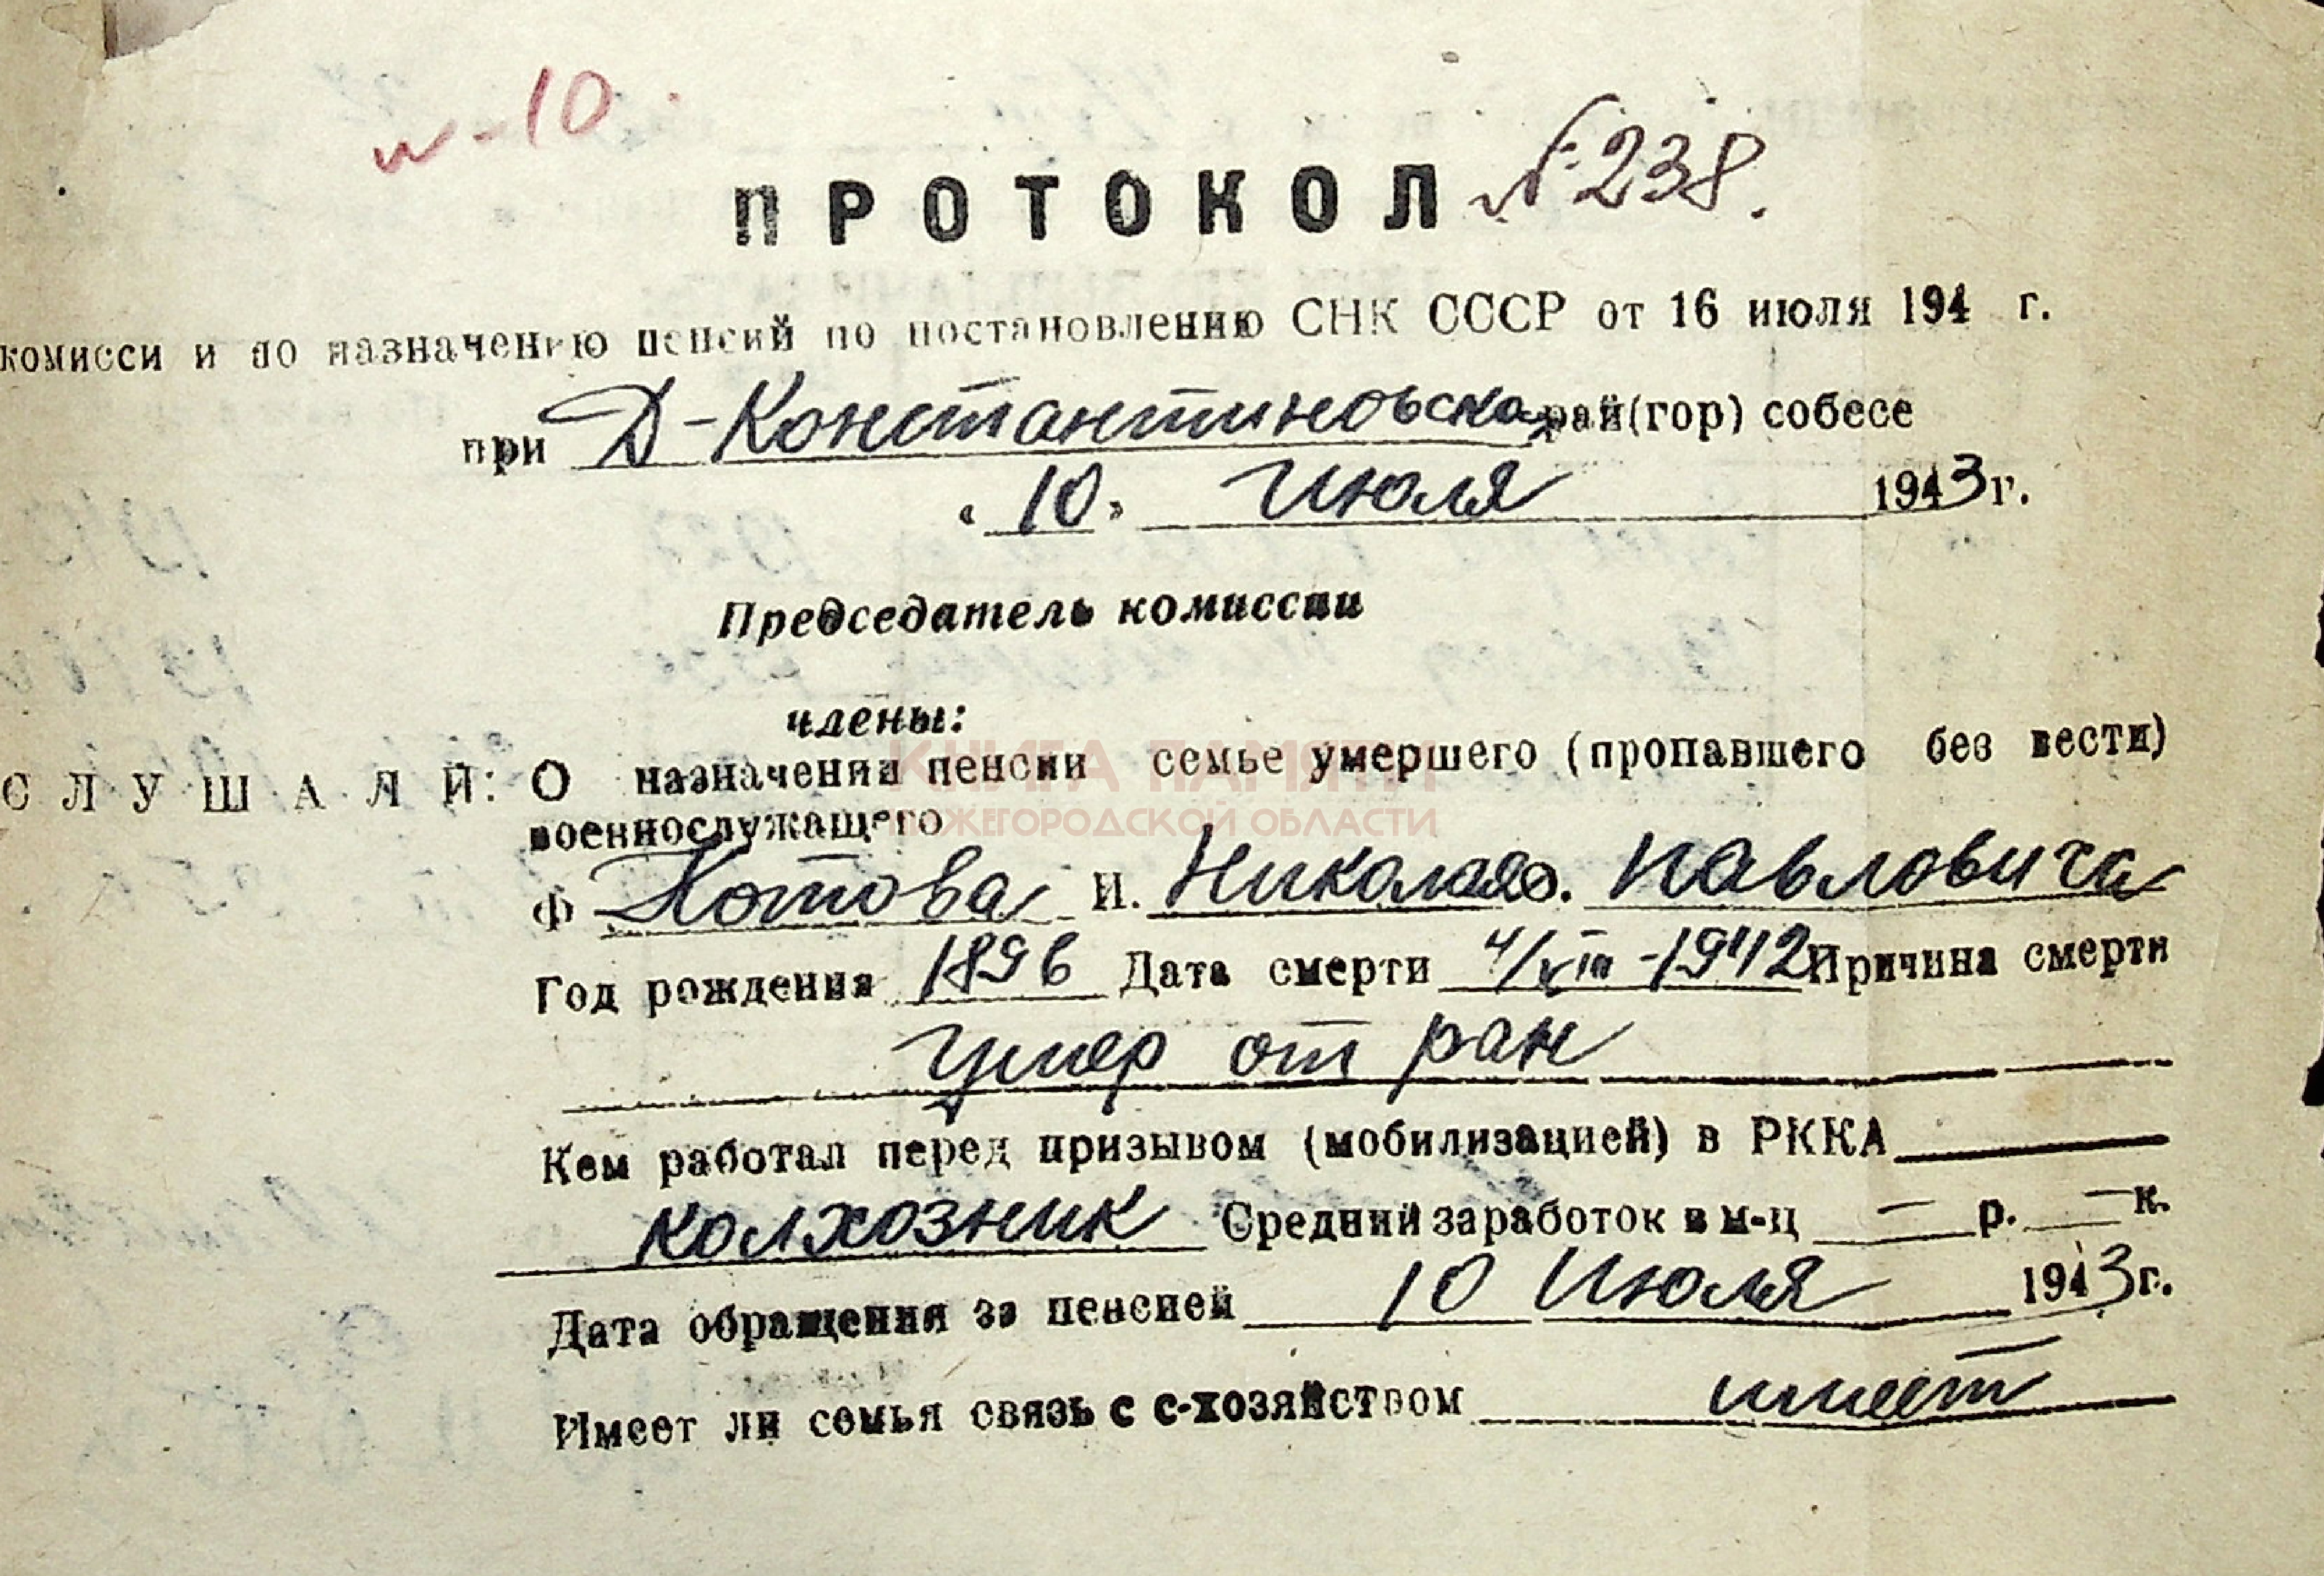 и-10
ПРОТОКОЛ №238.
комисси и по назначению пенсий по постановлению СНК СССР от 16 июля 194 г.
при Д-Константиновском рай(гор) собесе
«10» Июля 1943г.
Председатель комиссии
члены:
СЛУШАЛИ: О назначении пенсии семье умершего (пропавшего без вести)
военнослужащего
КНИГА ПАМЯТИ
НИЖЕГОРОДСКОЙ ОБЛАСТИ
Ф Котова И. Николая о. Павловича
Год рождения 1896 Дата смерти 4/VIII-1942 Причина смерти
Умер от ран
Кем работал перед призывом (мобилизацией) в РККА
колхозник Средний заработок в м-ц — р. — к.
Дата обращения за пенсией 10 Июля 1943г.
Имеет ли семья связь с с-хозяйством имеет